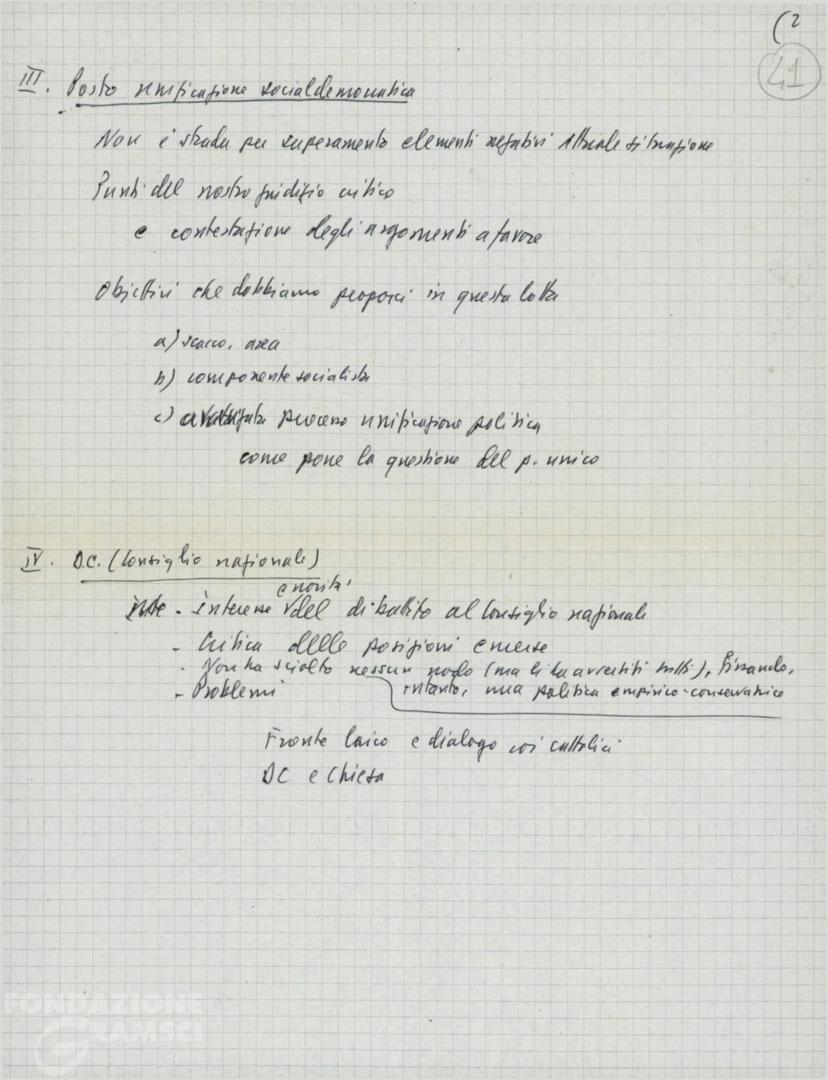 (2
41
III. Posto unificazione socialdemocratica
Non è strada per superamento elementi negativi attuale situazione
Punti del nostro giudizio critico
e contestazione degli argomenti a favore
Obiettivi che dobbiamo proporci in questa lotta
a) area
b) componente socialista
c) processo unificazione politica
come pone la questione del p. unico
IV. D.C. (Consiglio nazionale)
e novità
- interesse del dibattito al Consiglio nazionale
- Critica delle posizioni emerse
- Non ha sciolto nessun nodo (ma li ha avvertiti tutti),
- Problemi
intanto, una politica empirico-conservatrice
Fronte laico e dialogo coi cattolici
DC e Chiesa
FONDAZIONE
GRAMSCI